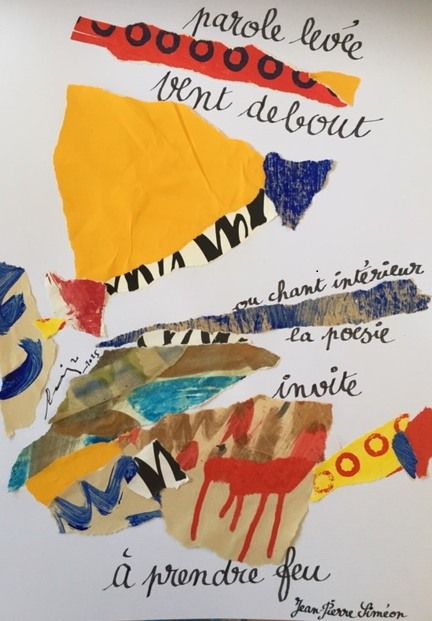 parole levée
vent debout
ou chant intérieur
la poésie
invite
à prendre feu
Jean-Pierre Siméon